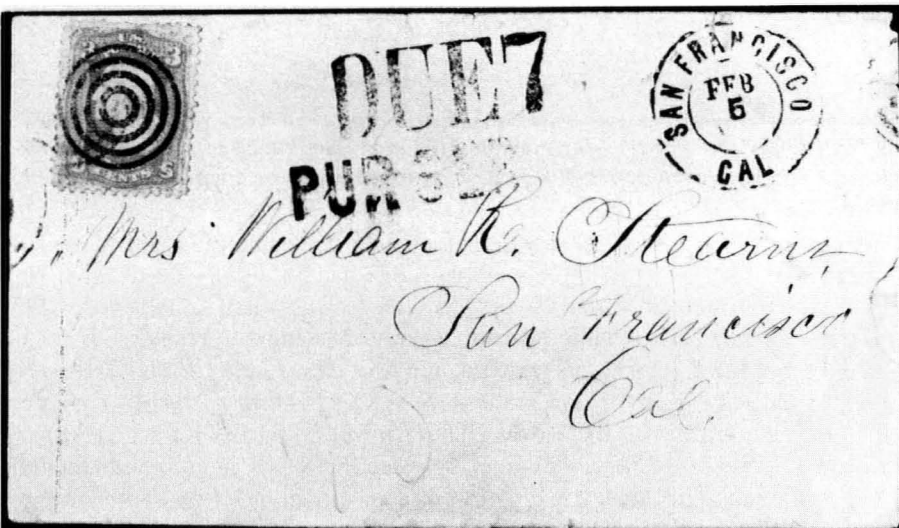 DUE 7
SAN FRANCISCO
FEB
5
CAL
PUR
Mrs William R. Stearns,
San Francisco
Cal.